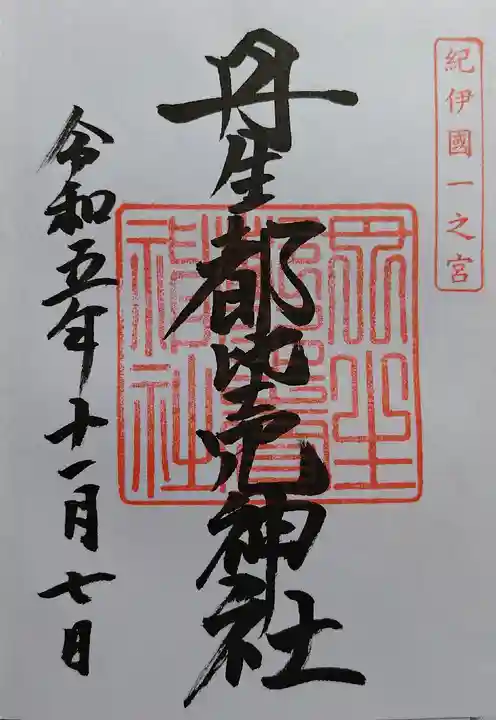 紀伊國一之宮
丹生都比売神社
丹生都比賣神社
令和五年十一月七日